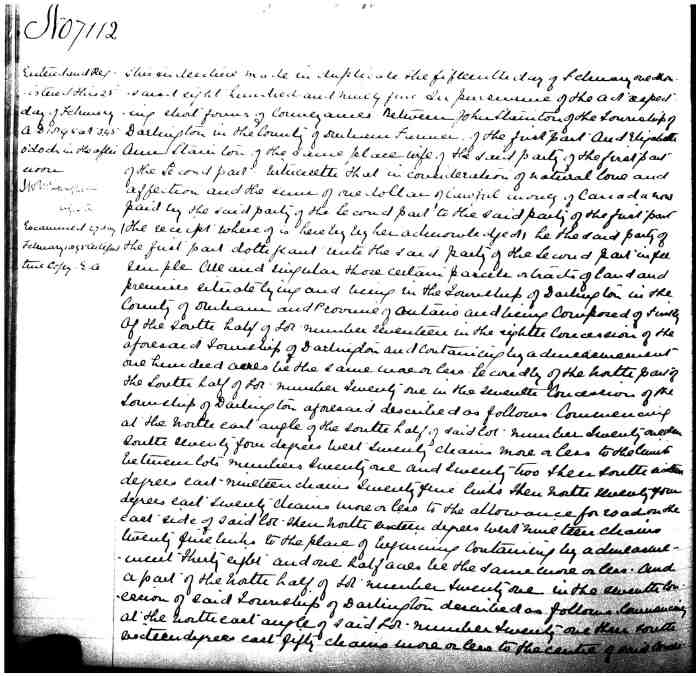 No 7112
Entered and Reg-
istered this 25
day of February
A D 1895 at 3.45
o'clock in the after
noon
Examined 27 day
February 1895 Certified
true Copy. E. A
This indenture made in duplicate the fifteenth day of February one thou-
sand eight hundred and ninety five In pursuance of the act respect
ing short forms of Conveyances Between John Stainton of the Township of
Darlington in the County of Durham Farmer of the first part And Elizabeth
Ann Stainton of the same place wife of the said party of the first part
of the Second part. Witnesseth that in consideration of natural love and
affection and the sum of one dollar of lawful money of Canada now
paid by the said party of the Second part to the said party of the first part
the receipt whereof is hereby by her acknowledged, he the said party of
the first part doth grant unto the said party of the Second part in fee
simple All and singular those certain parcels or tracts of land and
premises situate lying and being in the Township of Darlington in the
County of Durham and Province of Ontario and being Composed of Firstly
Of the South half of Lot number Seventeen in the eighth Concession of the
aforesaid Township of Darlington and containing by admeasurement
one hundred acres be the same more or less Secondly of the North part of
the South half of Lot number Twenty one in the Seventh Concession of the
Township of Darlington aforesaid described as follows Commencing
at the North east angle of the South half of said Lot number Twenty one then
South seventy four degrees West Twenty chains more or less to the limits
between lots numbers Twenty one and Twenty two Then South sixteen
degrees east nineteen chains Twenty five links then North seventy four
degrees east Twenty chains more or less to the allowance for road on the
east side of said Lot then North sixteen degrees West nineteen chains
twenty five links to the place of beginning Containing by admeasure-
ment Thirty eight and one half acres be the same more or less. And
a part of the North half of Lot number Twenty one in the seventh Con
cession of said Township of Darlington described as follows Commencing
at the north east angle of said Lot number Twenty one then South
sixteen degrees east fifty chains more or less to the centre of said